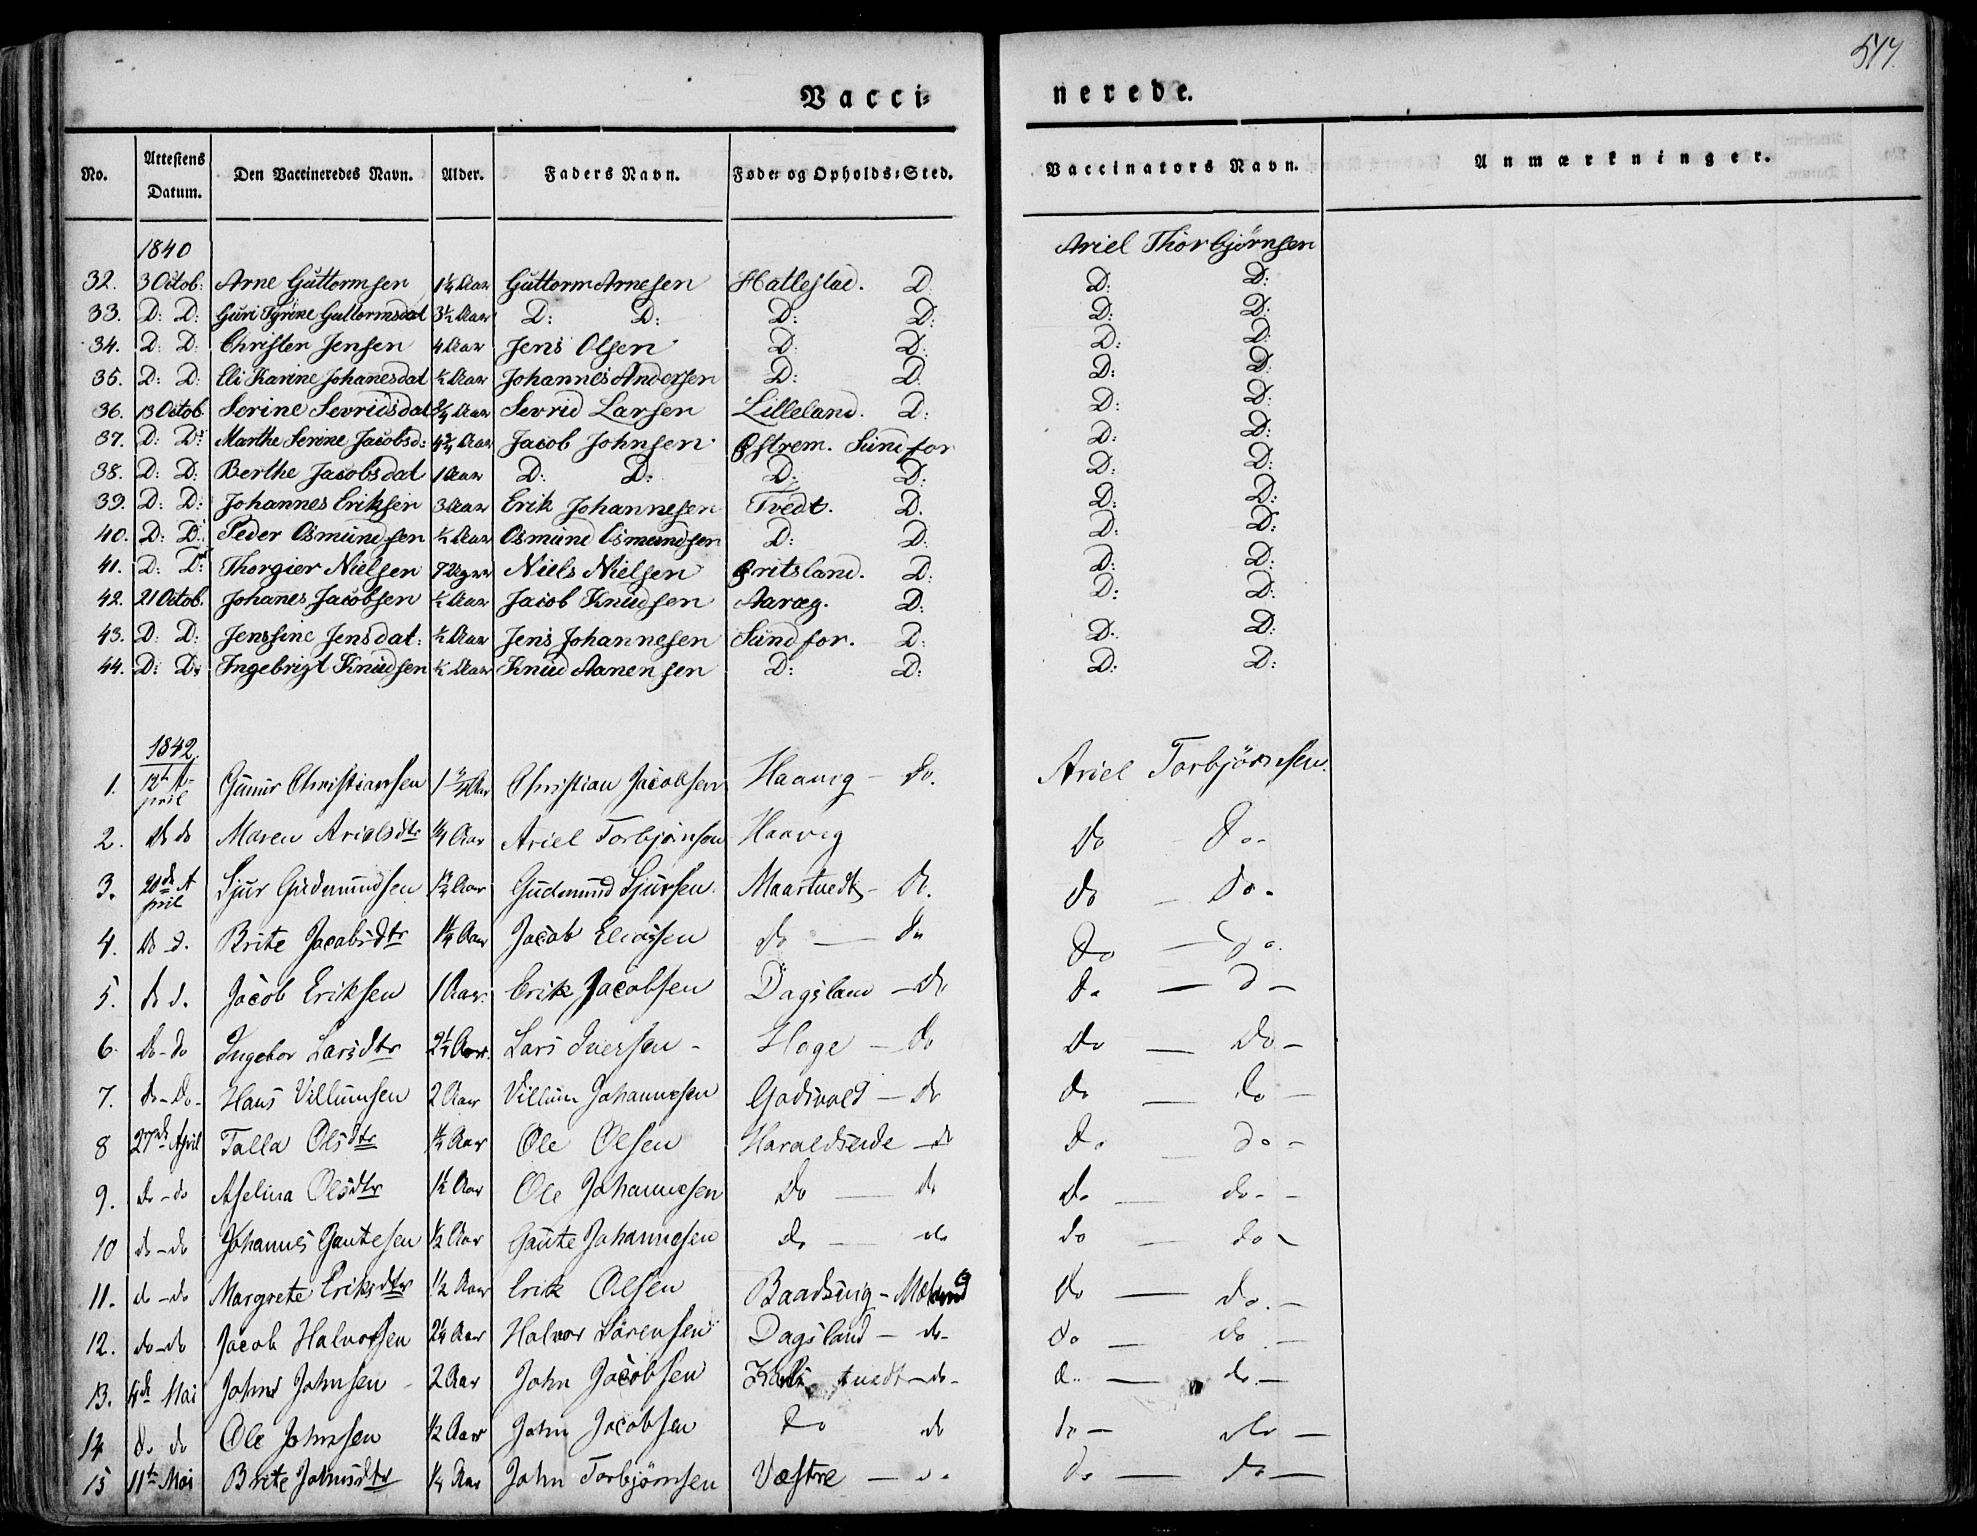 517.
Vacci= nerede.
No. Attestens Datum. Den Vaccineredes Navn. Alder. Faders Navn. Føde= og Opholds=Sted. Vaccinators Navn. Anmærkninger.
1840 Ariel Thorbjørnsen
32. 3 Octob: Arne Guttormsen 1¼ Aar Guttorm Arnesen Hatlestad. D: D: D:
33. D: D: Guri Tyrine Guttormsdat 3½ Aar D: D: D: D: D: D:
34. D: D: Christen Jensen 4 Aar Jens Olsen D: D: D: D:
35. D: D: Eli Karine Johanesdat ½ Aar Johannes Andersen D: D. D: D:
36. 13 Octob. Serine Sevridsdat ¾ Aar Sevrid Larsen Lilleland. D: D: D:
37. D: D: Marthe Serine Jacobsd: 4¾ Aar Jacob Johnsen Østrem. Sundfor D: D:
38. D: D: Berthe Jacobsdat 1 Aar D: D: D: D: D: D:
39. D: D: Johannes Eriksen 3 Aar Erik Johannesen Tvedt. D. D: D:
40. D: D: Peder Osmundsen ½ Aar Osmund Osmundsen D: D: D: D:
41. D: D: Thorgier Nielsen 7 Uger Niels Nielsen Øritsland. D: D: D:
42. 21 Octob. Johanes Jacobsen ½ Aar Jacob Knudsen Aaræg. D: D: D:
43. D: D: Jenssine Jensdat: ½ Aar Jens Johannesen Sundfor. D: D: D:
44. D: D: Ingebrigt Knudsen ½ Aar Knud Aanensen D: D: D: D:
1842.
1. 12te April Christiansen 1 Aar Christian Jacobsen Haavig - do. Ariel Torbjørnsen.
2. do do Maren Arielsdtr ¼ Aar Ariel Torbjørnsen Haavig do - do-
3. 20de April Sjur Gudmundsen Aar Gudmund Sjursen. Maartvedt - do. do - do -
4. do d. Brite Jacobsdtr 1¼ Aar Jacob Eliassen do - do do - do.
5. do d. Jacob Eriksen 1 Aar. Erik Jacobsen Dagsland - do do - d -
6. do - do Ingebor Larsdtr Aar. Lars Iversen - Hoge - do do - do -
7. do - do - Hans Villumsen 2 Aar Villum Johannesen Godsvold - do do - do -
8 27de April Talla Olsdtr ½ Aar Ole Olsen Haraldseide - do do - do -
9. do - do Aselina Olsdtr 1½ Aar Ole Johannesen do - do do - do - -
10 do - do Johannes Gautesen ½ Aar Gaute Johannesen do - do do - do -
11. do - do Margrete Eriksdtr ½ Aar Erik Olsen Baadsvig - do - do. -
12. do - do Jacob Halvorsen 2¼ Aar Halvor Sørensen Dagsland - do - do - do -
13. 4de Mai Johnsen - 2 Aar John Jacobsen tvedt - do - do - do. -
14 do do Ole Johnsen ½ Aar John Jacobsen do do do - do -
15 11te Mai Brite Johnsdtr ¼ Aar John Torbjørnsen Væstre - do do - do -